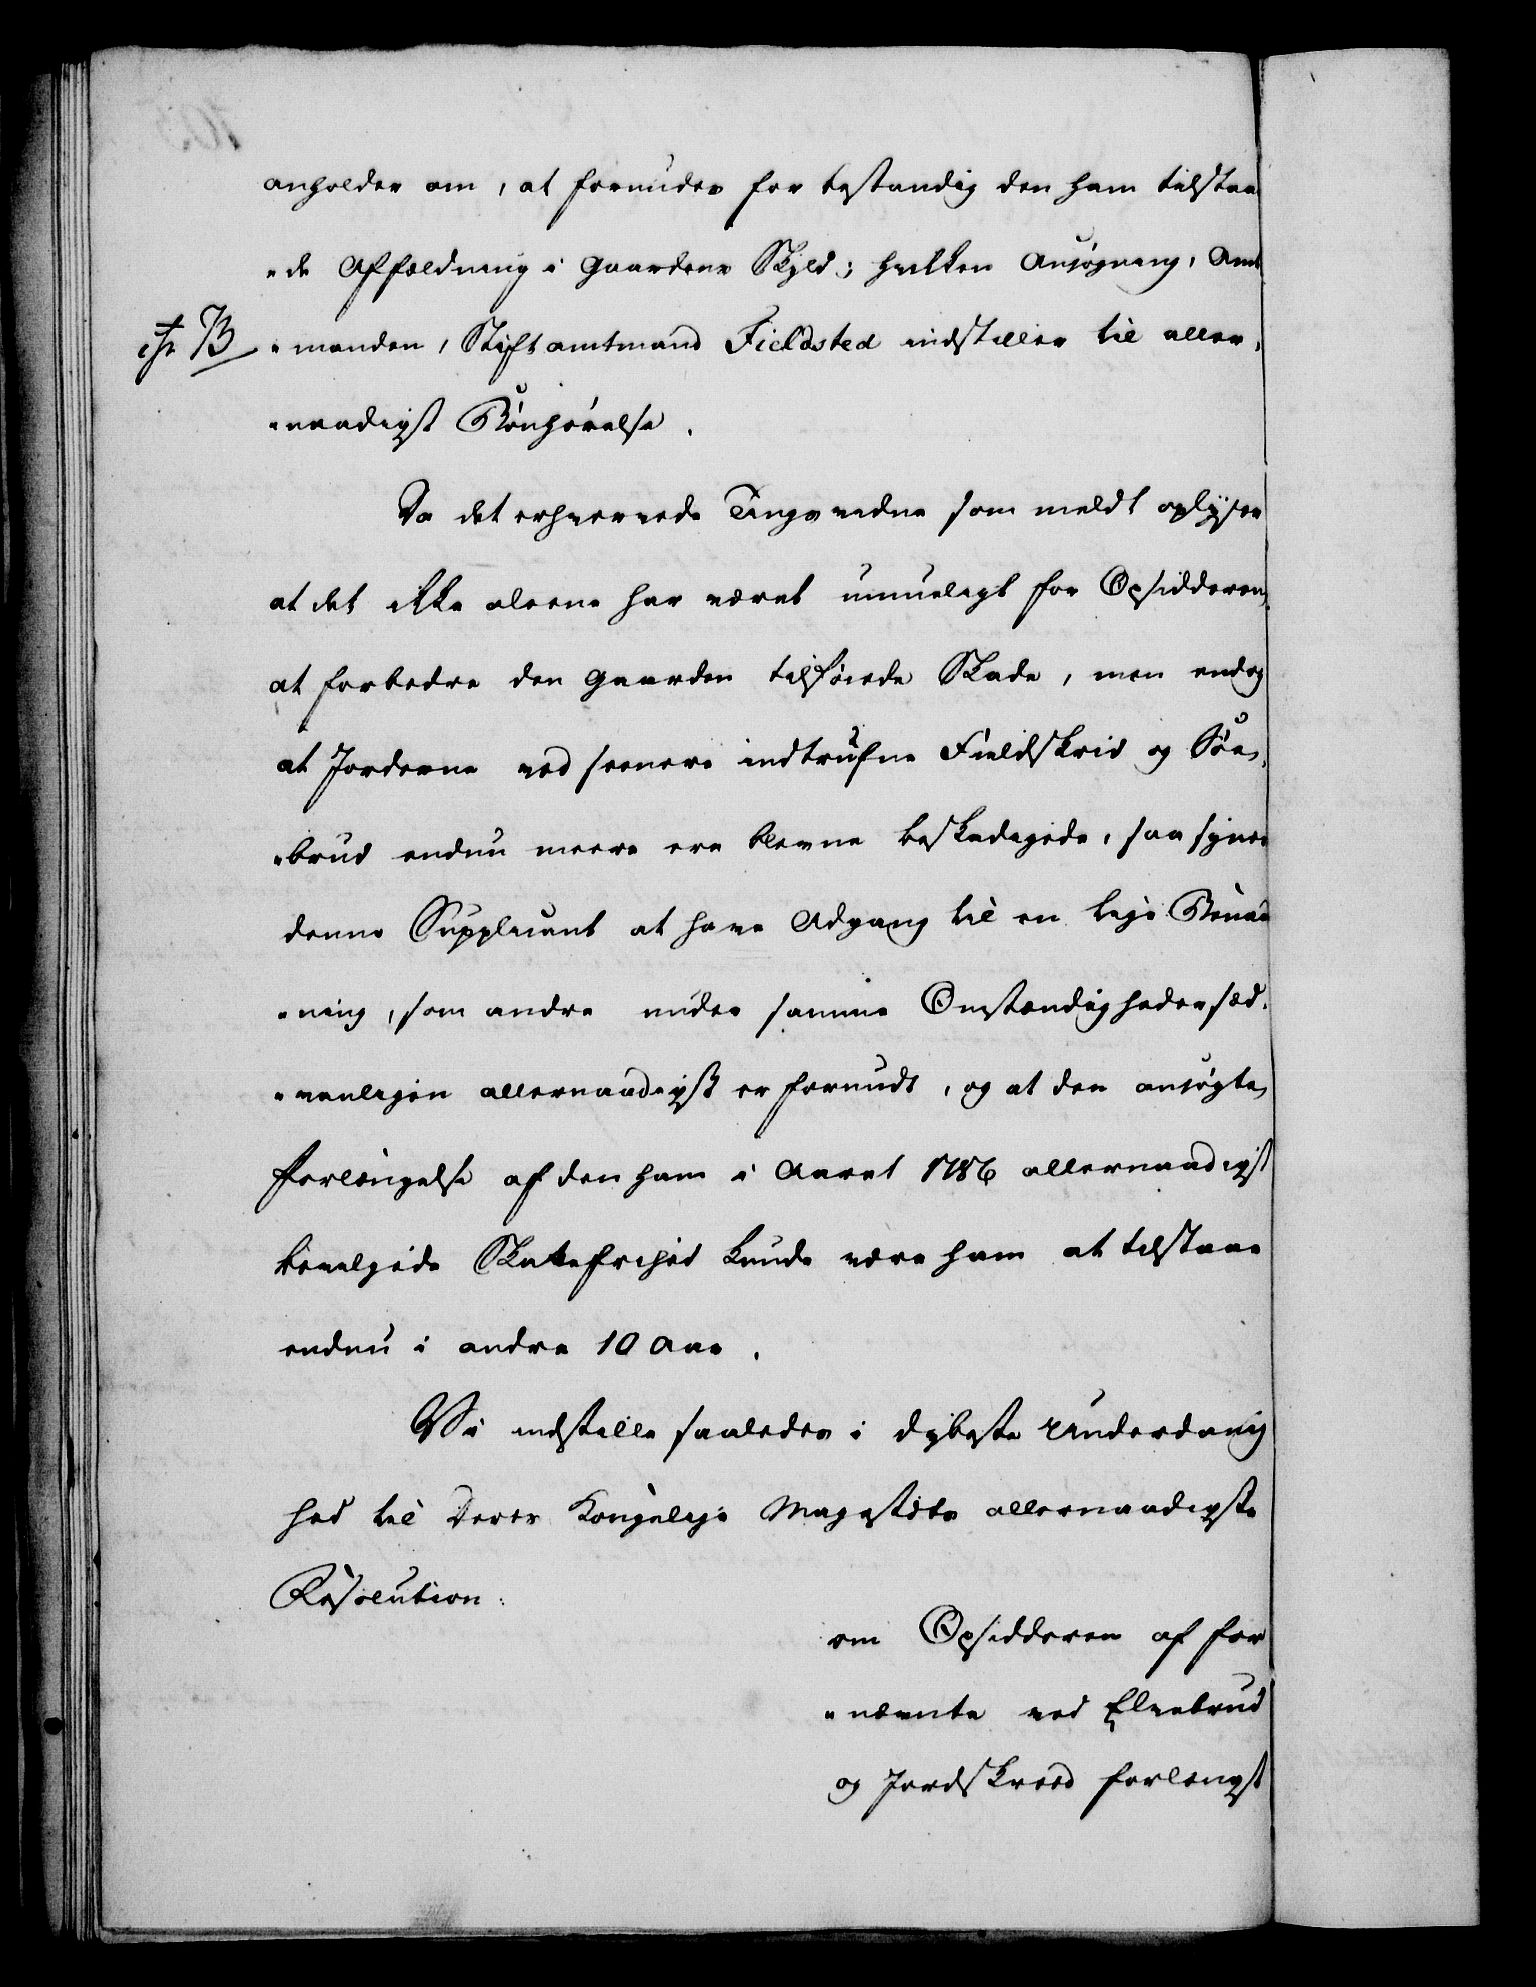 anholder om, at forundes for bestandig den ham tilstaa
"de Affældning i Gaardens Skyld; hvilken Ansøgning, Amt
"manden, Stiftamtmand Fieldsted indstiller til aller,
"naadigst Bønhørelse.
Da det erhvervede Tingsvidne som meldt oplyser
at det ikke aleene har været umueligt for Opsidderen,
at forbedre den Gaarden tilføiede Skade, men endog
at Jorderne ved seenere indtrufne Fieldskrid og Søe,
"brud endnu meere ere blevne beskadigede, saa synes
denne Supplicant at have Adgang til en lige Benaad
"ning, som andre under samme Omstændigheder sæd,
"vanligen allernaadigst er forundt, og at den ansøgte
Forlængelse af den ham i Aaret 1786 allernaadigst
bevilgede Skattefrihed kunde være ham at tilstaae
endnu i andre 10 Aar.
Vi indstille saaledes i dybeste Underdanig
hed til Deres Kongelige Majestets allernaadigste
Resolution:
om Opsidderen af for
"nævnte ved Elvebrud
og Jordskreed forlengst